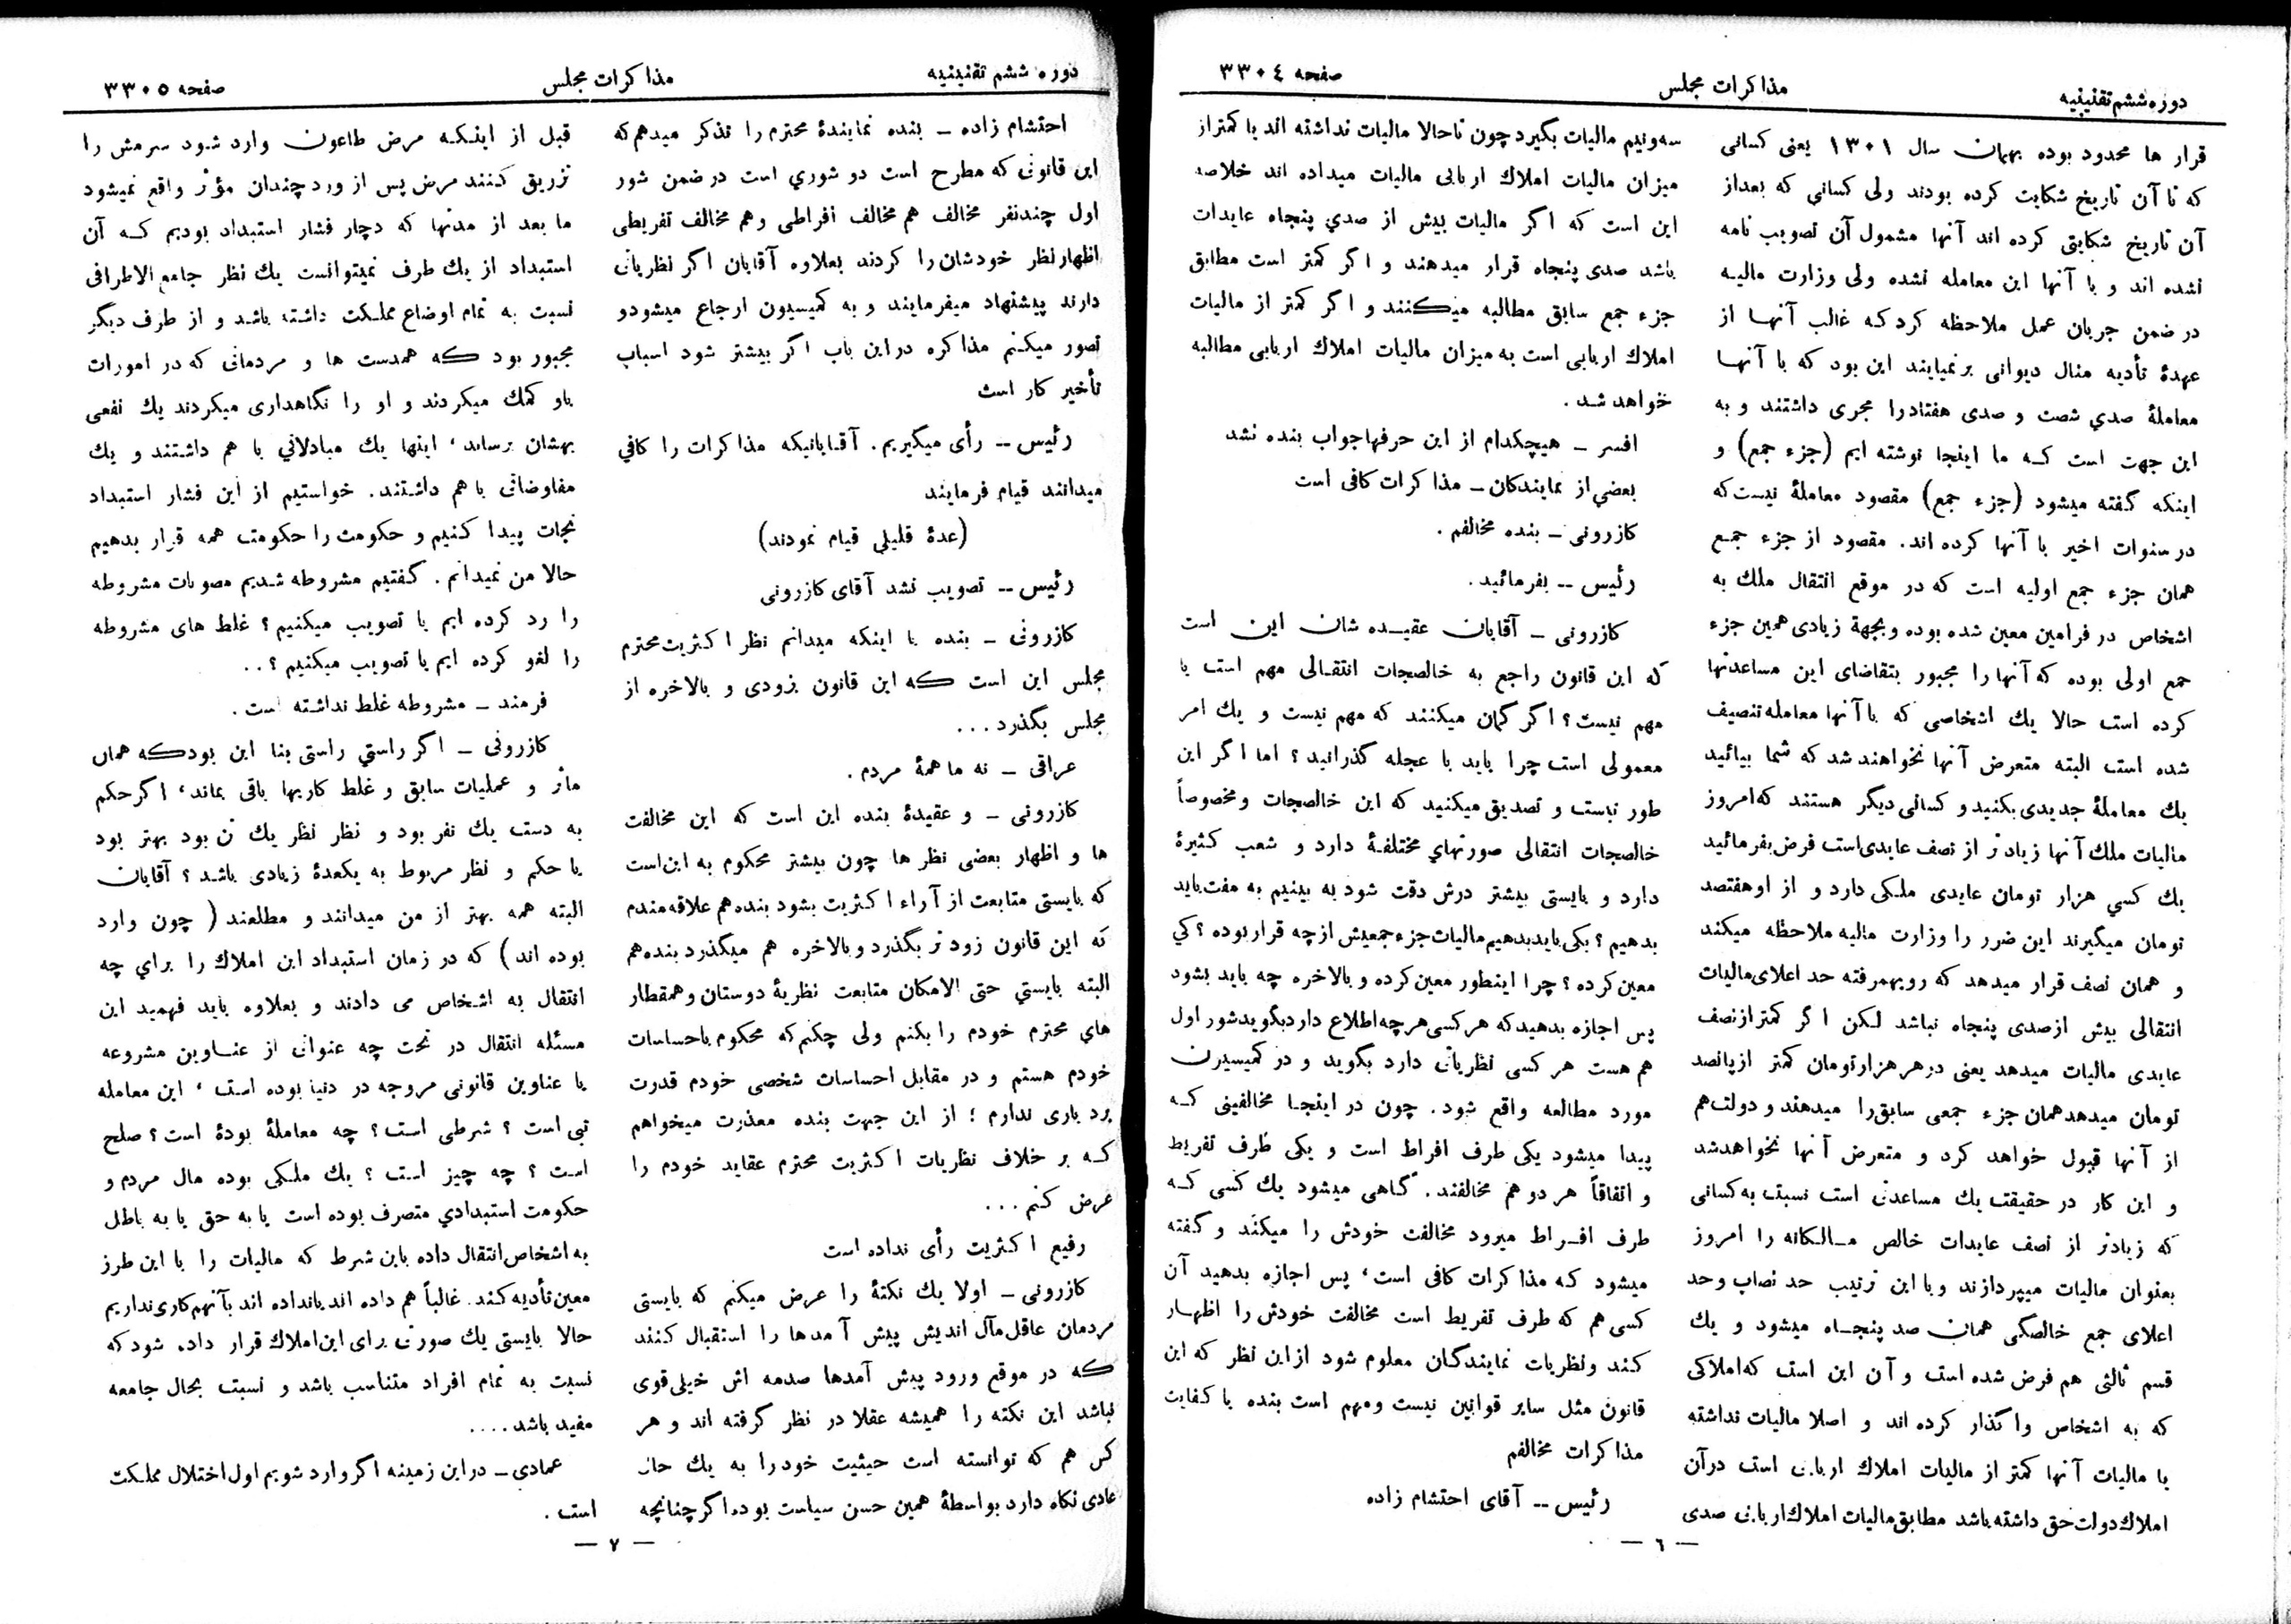 دوره ششم تقنینیه
مذاکرات مجلس
صفحه ۳۳۰٤
قرار ها محدود بوده بهمان سال ۱۳۰۱ یعنی کسانی
که تا آن تاریخ شکایت کرده بودند ولی کسانی که بعداز
آن تاریخ شکایتی کرده اند آنها مشمول آن تصویب نامه
نشده اند و با آنها این معامله نشده ولی وزارت مالیه
در ضمن جریان عمل ملاحظه کرد که غالب آنها از
عهدهٔ تأدیه منال دیوانی بر نمیایند این بود که با آنها
معاملهٔ صدی شصت و صدی هفتاد را مجری داشتند و به
این جهت است که ما اینجا نوشته ایم (جزء جمع) و
اینکه گفته میشود (جزء جمع) مقصود معاملهٔ نیست که
در سنوات اخیر با آنها کرده اند. مقصود از جزء جمع
همان جزء جمع اولیه است که در موقع انتقال ملك به
اشخاص در فرامین معین شده بوده و بجهة زیادی همین جزء
جمع اولی بوده که آنها را مجبور بتقاضای این مساعدتها
کرده است حالا یك اشخاصی که با آنها معامله تنصیف
شده است البته متعرض آنها نخواهند شد که شما بیائید
یك معاملهٔ جدیدی بکنید و کسانی دیگر هستند که امروز
مالیات ملك آنها زیاد تر از نصف عایدی است فرض بفرمائید
یك کسی هزار تومان عایدی ملکی دارد و از او هفتصد
تومان میگیرند این ضرر را وزارت مالیه ملاحظه میکند
و همان نصف قرار میدهد که رویهمرفته حد اعلای مالیات
انتقالی بیش از صدی پنجاه نباشد لکن اگر کمتر از نصف
عایدی مالیات میدهد یعنی در هر هزار تومان کمتر از پانصد
تومان میدهد همان جزء جمعی سابق را میدهند و دولت هم
از آنها قبول خواهد کرد و متعرض آنها نخواهد شد
و این کار در حقیقت یك مساعدتی است نسبت به کسانی
که زیادتر از نصف عایدات خالص مالکانه را امروز
بعنوان مالیات میپردازند و با این ترتیب حد نصاب و حد
اعلای جمع خالصگی همان صد پنجاه میشود و یك
قسم ثالثی هم فرض شده است و آن این است که املاکی
که به اشخاص واگذار کرده اند و اصلا مالیات نداشته
یا مالیات آنها کمتر از مالیات املاك اربابی است در آن
املاك دولت حق داشته باشد مطابق مالیات املاك اربابی صدی
سه و نیم مالیات بگیرد چون تا حالا مالیات نداشته اند یا کمتر از
میزان مالیات املاك اربابی مالیات میداده اند خلاصه
این است که اگر مالیات بیش از صدی پنجاه عایدات
باشد صدی پنجاه قرار میدهند و اگر کمتر است مطابق
جزء جمع سابق مطالبه میکنند و اگر کمتر از مالیات
املاك اربابی است به میزان مالیات املاك اربابی مطالبه
خواهد شد .
افسر ـ هیچکدام از این حرفها جواب بنده نشد
بعضی از نمایندکان ـ مذاکرات کافی است
کازرونی ـ بنده مخالفم .
رئیس ــ بفرمائید .
کازرونی ـ آقایان عقیده شان این است
که این قانون راجع به خالصجات انتقالی مهم است یا
مهم نیست ؟ اگر گمان میکنند که مهم نیست و یك امر
معمولی است چرا باید با عجله گذرانید ؟ اما اگر این
طور نیاست و تصدیق میکنید که این خالصجات و مخصوصاً
خالصجات انتقالی صورتهای مختلفهٔ دارد و شعب کثیرهٔ
دارد و بایستی بیشتر درش دقت شود به بینیم به مفت باید
بدهیم ؟ بکی باید بدهیم مالیات جزء جمعیش از چه قرار بوده ؟ کی
معین کرده ؟ چرا اینطور معین کرده و بالاخره چه باید بشود
پس اجازه بدهید که هر کسی هر چه اطلاع دارد بگوید شور اول
هم هست هر کسی نظریاتی دارد بگوید و در کمیسیون
مورد مطالعه واقع شود. چون در اینجا مخالفینی که
پیدا میشود یکی طرف افراط است و یکی طرف تفریط
و اتفاقاً هر دو هم مخالفند. گاهی میشود یك کسی که
طرف افراط میرود مخالفت خودش را میکند و گفته
میشود که مذاکرات کافی است ، پس اجازه بدهید آن
کسی هم که طرف تفریط است مخالفت خودش را اظهار
کند و نظریات نمایندگان معلوم شود از این نظر که این
قانون مثل سایر قوانین نیست و مهم است بنده با کفایت
مذاکرات مخالفم
رئیس ــ آقای احتشام زاده
— ٦ —
دوره ششم تقنینیه
مذاکرات مجلس
صفحه ۳۳۰۵
احتشام زاده ـ بنده نمایندهٔ محترم را تذکر میدهم که
این قانونی که مطرح است دو شوری است در ضمن شور
اول چند نفر مخالف هم مخالف افراطی و هم مخالف تفریطی
اظهار نظر خودشان را کردند بعلاوه آقایان اگر نظریاتی
دارند پیشنهاد میفرمایند و به کمیسیون ارجاع میشود و
تصور میکنم مذاکره در این باب اگر بیشتر شود اسباب
تأخیر کار است
رئیس ــ رأی میگیریم. آقایانیکه مذاکرات را کافی
میدانند قیام فرمایند
(عدهٔ قلیلی قیام نمودند)
رئیس ــ تصویب نشد آقای کازرونی
کازرونی ـ بنده با اینکه میدانم نظر اکثریت محترم
مجلس این است که این قانون بزودی و بالاخره از
مجلس بگذرد ...
عراقی ـ نه ما همهٔ مردم .
کازرونی ـ و عقیدهٔ بنده این است که این مخالفت
ها و اظهار بعضی نظر ها چون بیشتر محکوم به این است
که بایستی متابعت از آراء اکثریت بشود بنده هم علاقه مندم
که این قانون زود تر بگذرد و بالاخره هم میگذرد بنده هم
البته بایستی حتی الامکان متابعت نظریهٔ دوستان و همقطار
های محترم خودم را بکنم ولی چکنم که محکوم باحساسات
خودم هستم و در مقابل احساسات شخصی خودم قدرت
برد باری ندارم ؛ از این جهت بنده معذرت میخواهم
که بر خلاف نظریات اکثریت محترم عقاید خودم را
عرض کنم ...
رفیع اکثریت رأی نداده است
کازرونی ـ اولا یك نکتهٔ را عرض میکنم که بایستی
مردمان عاقل مآل اندیش پیش آمدها را استقبال کنند
که در موقع ورود پیش آمدها صدمه اش خیلی قوی
نباشد این نکته را همیشه عقلا در نظر گرفته اند و هر
کس هم که توانسته است حیثیت خود را به یك حال
عادی نکاه دارد بواسطهٔ همین حسن سیاست بوده اگر چنانچه
قبل از اینکه مرض طاعون وارد شود سرمش را
تزریق کنند مرض پس از ورد چندان مؤثر واقع نمیشود
ما بعد از مدتها که دچار فشار استبداد بودیم که آن
استبداد از یك طرف نمیتوانست یك نظر جامع الاطرافی
نسبت به تمام اوضاع مملکت داشته باشد و از طرف دیگر
مجبور بود که همدست ها و مردمانی که در امورات
باو کمك میکردند و او را نگاهداری میکردند یك نفعی
بهشان برساند ، اینها یك مبادلاتی با هم داشتند و یك
مفاوضاتی با هم داشتند. خواستیم از این فشار استبداد
نجات پیدا کنیم و حکومت را حکومت همه قرار بدهیم
حالا من نمیدانم . گفتیم مشروطه شدیم مصوبات مشروطه
را رد کرده ایم یا تصویب میکنیم ؟ غلط های مشروطه
را لغو کرده ایم یا تصویب میکنیم ؟ ..
فرمند ـ مشروطه غلط نداشته است .
کازرونی ـ اگر راستی راستی بنا این بود که همان
مآثر و عملیات سابق و غلط کاریها باقی بماند ، اگر حکم
به دست یك نفر بود و نظر نظر یك تن بود بهتر بود
یا حکم و نظر مربوط به یکعدهٔ زیادی باشد ؟ آقایان
البته همه بهتر از من میدانند و مطلعند ( چون وارد
بوده اند) که در زمان استبداد این املاك را برای چه
انتقال به اشخاص می دادند و بعلاوه باید فهمید این
مسئله انتقال در تحت چه عنوانی از عناوین مشروعه
یا عناوین قانونی مروجه در دنیا بوده است ، این معامله
تبی است ؟ شرطی است ؟ چه معاملهٔ بودهٔ است ؟ صلح
است ؟ چه چیز است ؟ یك ملکی بوده مال مردم و
حکومت استبدادی متصرف بوده است یا به حق یا به باطل
به اشخاص انتقال داده باین شرط که مالیات را با این طرز
معین تأدیه کند. غالباً هم داده اند یا نداده اند بآنهم کاری نداریم
حالا بایستی یك صورتی برای این املاك قرار داده شود که
نسبت به تمام افراد متناسب باشد و نسبت بحال جامعه
مفید باشد ....
عمادی ـ در این زمینه اگر وارد شویم اول اختلال مملکت
است .
— ۷ —